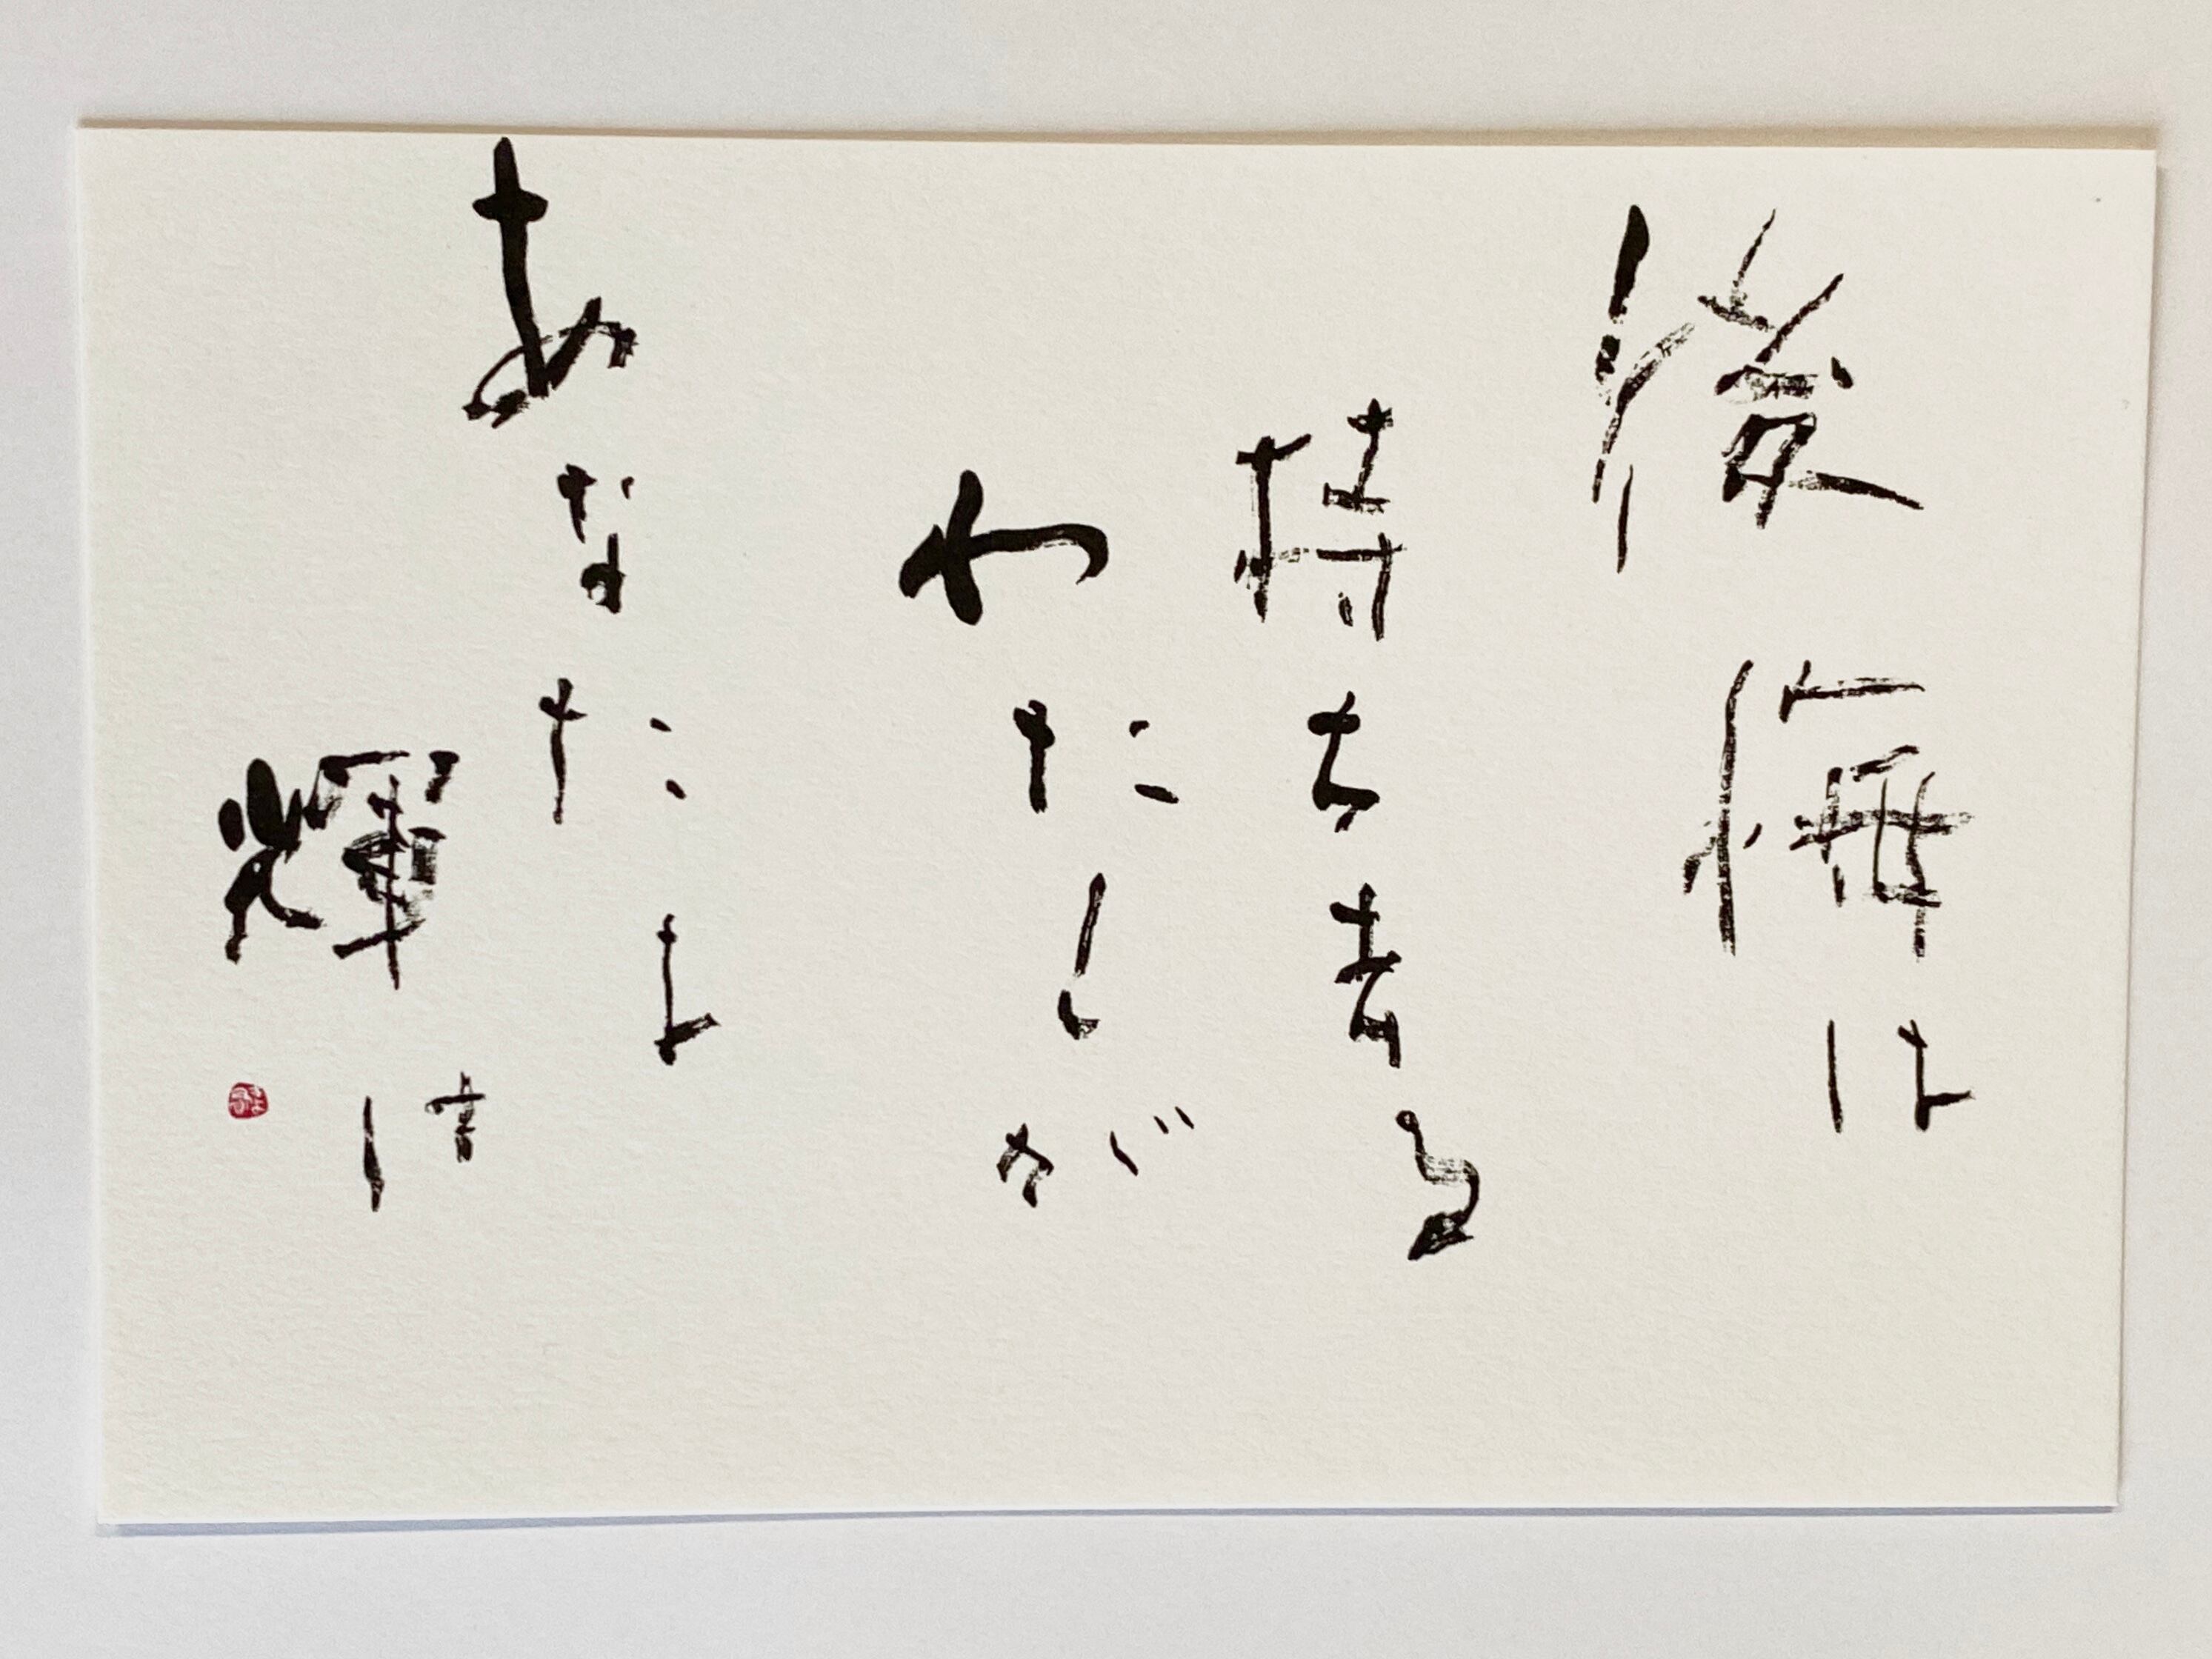 後悔は
持ち去る
わたしが
あなたよ
輝け